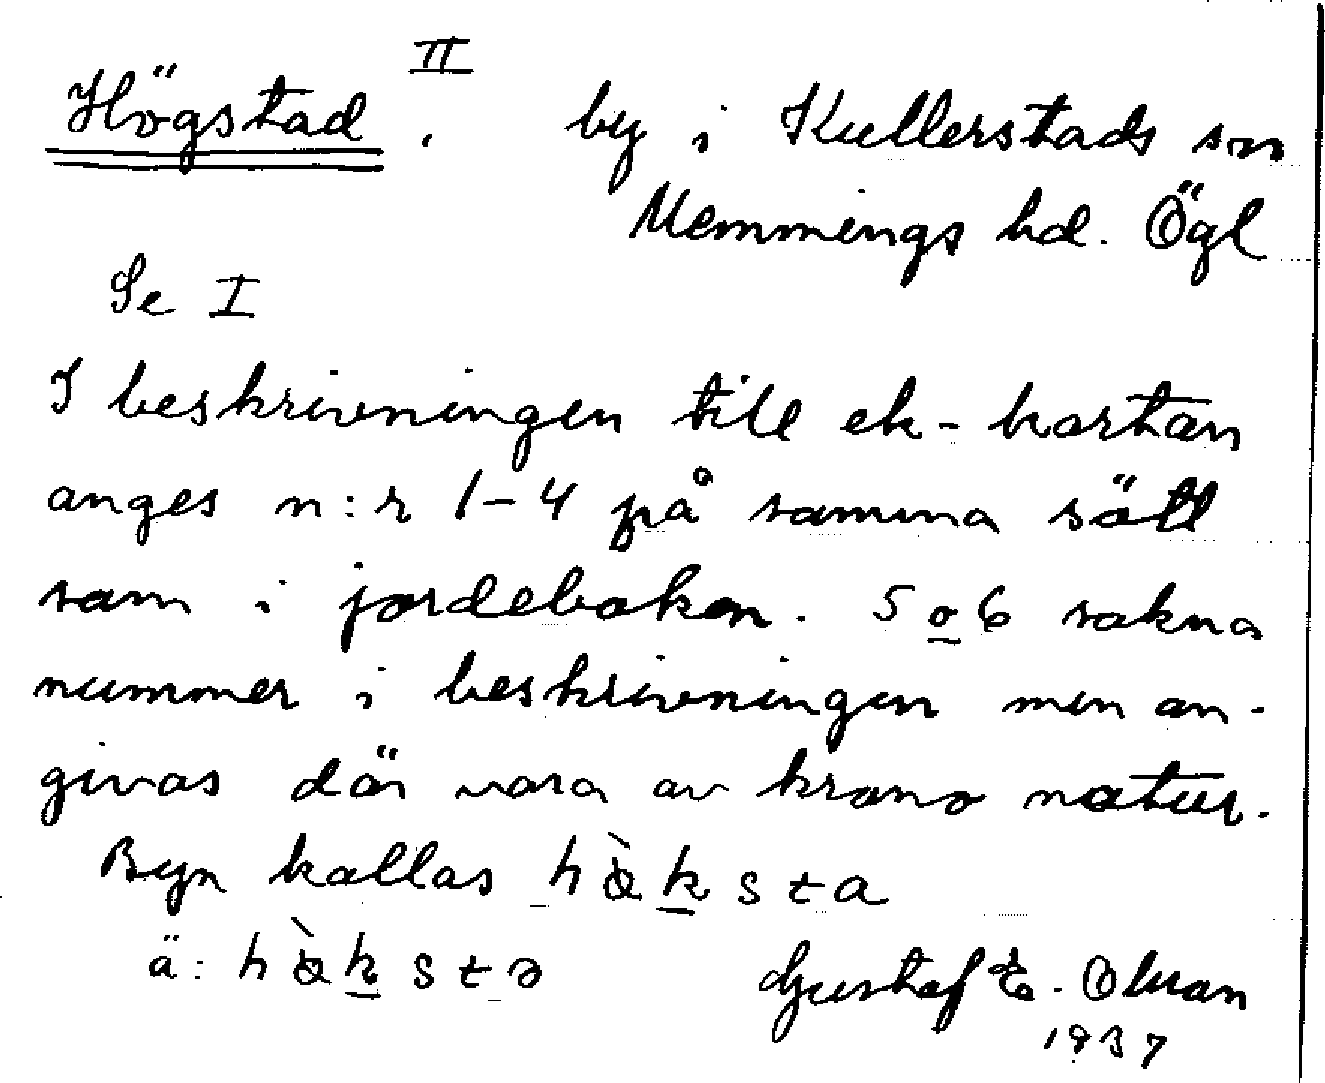 Högstad II, by i Kullerstads sn
Memmings hd. Ögl
Se I
I beskrivningen till ek-kartan
anges n:r 1-4 på samma sätt
som i jordeboken. 5 o 6 sakna
nummer i beskrivningen men an-
givas där vara av krono natur.
Byn kallas
ä:
Gustaf E.
1937